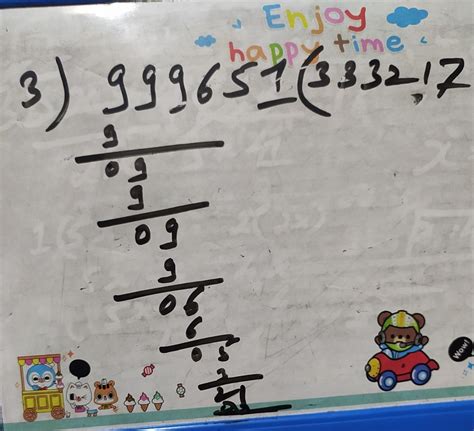 Enjoy
happy time
3) 999651(333217
9
09
9
09
9
06
6
05
3
21
Wow!